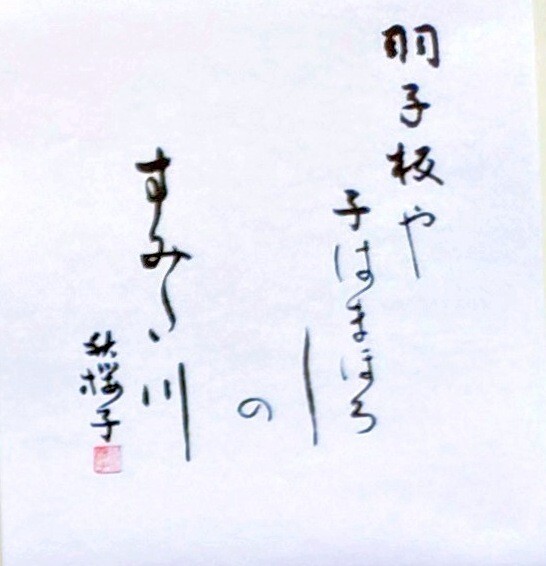 羽子板や
子はまほろ
し
の
すみた川
秋櫻子